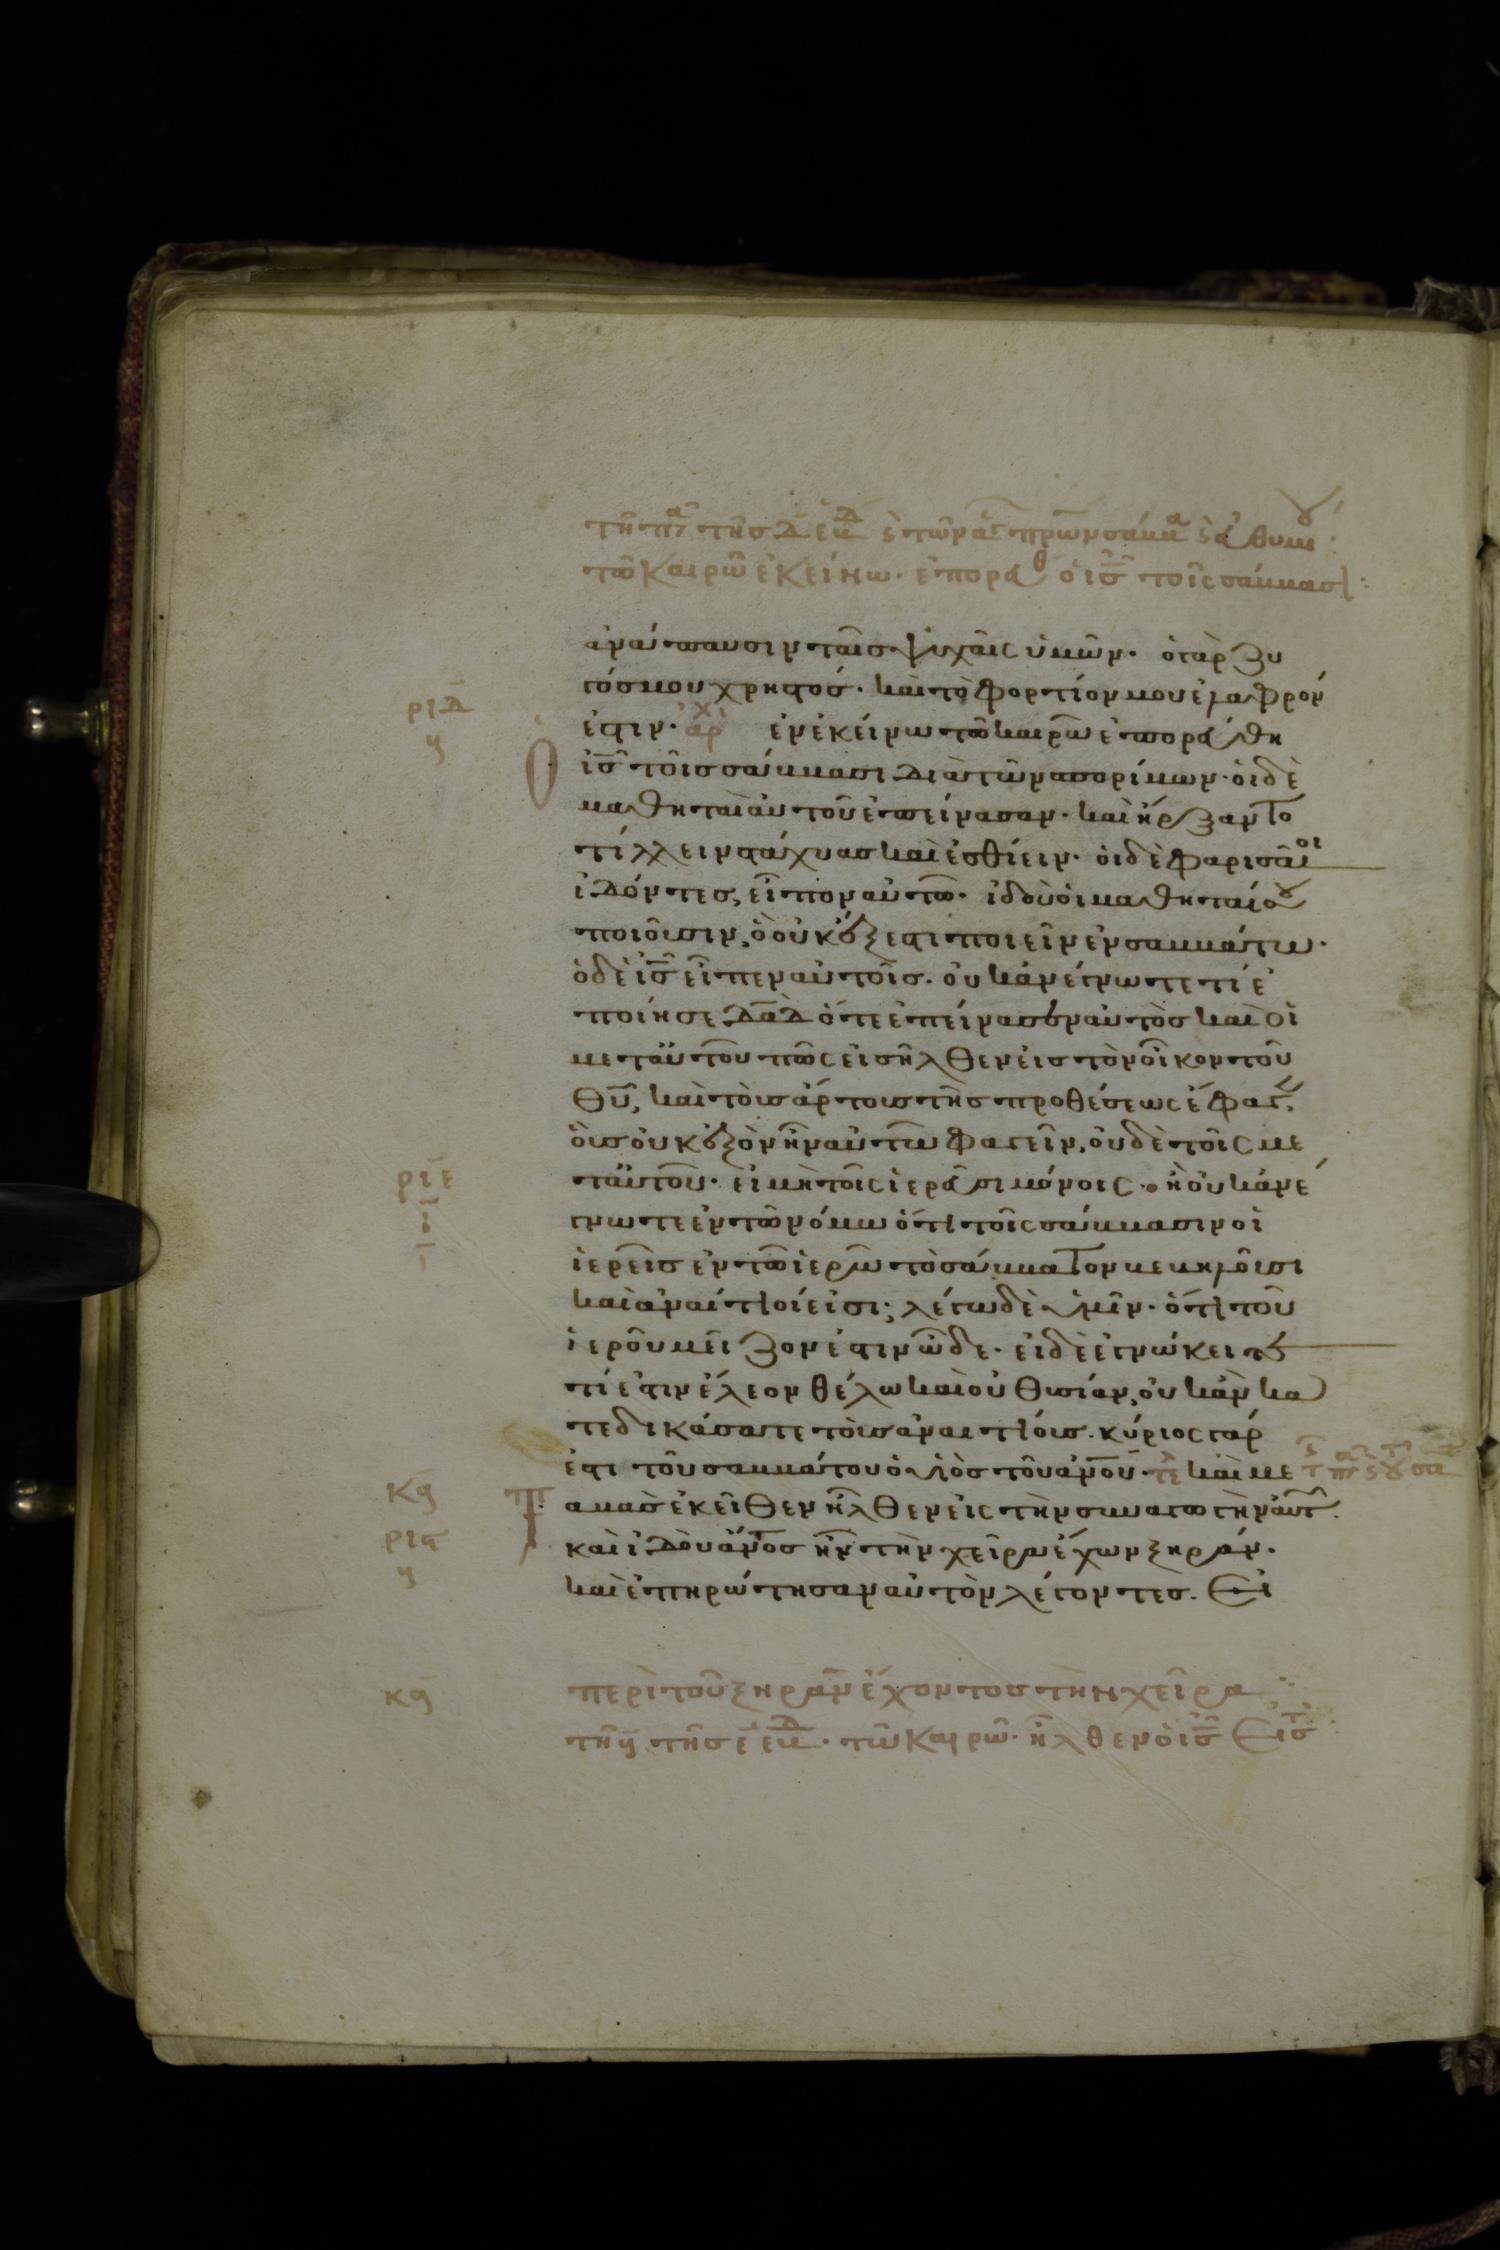 τῷ καιρῷ ἐκείνω· ἐπορεύθ ὁ ις τοῖς σάββασι:
ἀνάπαυσιν ταῖς ψυχαῖς ὑμῶν· ὁ γὰρ ζυ
γόσ μου χρηστός· καὶ τὸ φορτίον μου ἐλαφρόν
ριδ
ἐστιν· ἀρχ ἐν ἐκείνω τῶ καιρῶ ἐπορεύθη
ὁ ις τοῖς σάββασι διὰ τῶν σπορίμων· οἱ δὲ
μαθηταὶ αὐτοῦ ἐπείνασαν· καὶ ἤρξαντο
τίλλειν στάχυας καὶ ἐσθίειν· οἱ δὲ φαρισαῖοι
ἰδόντες, εἶπον αὐτῶ· ἰδοὺ οἱ μαθηταί σου
ποιοῦσιν, ὃ οὐκ ἔξεστι ποιεῖν ἐν σαββάτω·
ὁ δὲ ις εἶπεν αὐτοῖς· οὐκ ἀνέγνωτε τί ἐ
ποίησε δαδ ὅτε ἐπείνασεν αὐτὸς καὶ οἱ
μετ αὐτοῦ πῶς εἰσῆλθεν εἰς τὸν οἶκον τοῦ
θυ, καὶ τοὺς ἄρτους τῆς προθέσεως ἔφαγεν,
οὓς οὐκ ἐξὸν ἦν αὐτῶ φαγεῖν, οὐδὲ τοῖς με
ριε
τ αὐτοῦ· εἰ μὴ τοῖς ἱερεῦσι μόνοις· ἢ οὐκ ἀνέ
ι
γνωτε ἐν τῶ νόμω ὅτι τοῖς σάββασιν οἱ
ἱερεῖς ἐν τῶ ἱερῶ τὸ σάββατον βεβηλοῦσι
καὶ ἀναίτιοί εἰσι; λέγω δὲ ὑμῖν· ὅτι τοῦ
ἱεροῦ μεῖζον ἐστιν ὧδε· εἰ δὲ ἐγνώκειτε
τί ἐστιν ἔλεον θέλω καὶ οὐ θυσίαν, οὐκ ἂν κα
τεδικάσατε τοὺς ἀναιτίους. κύριος γάρ
ἐστι τοῦ σαββάτου ὁ υἱὸς τοῦ ανου· τε καὶ με
κα
ταβὰς ἐκεῖθεν ἦλθεν εἰς τὴν συναγωγὴν αὐτ.
ρις
καὶ ἰδοὺ ανος ἦν τὴν χεῖρα ἔχων ξηράν·
καὶ ἐπηρώτησαν αὐτὸν λέγοντες. εἰ
κα
περὶ τοῦ ξηρὰν ἔχοντος τὴν χεῖρα: